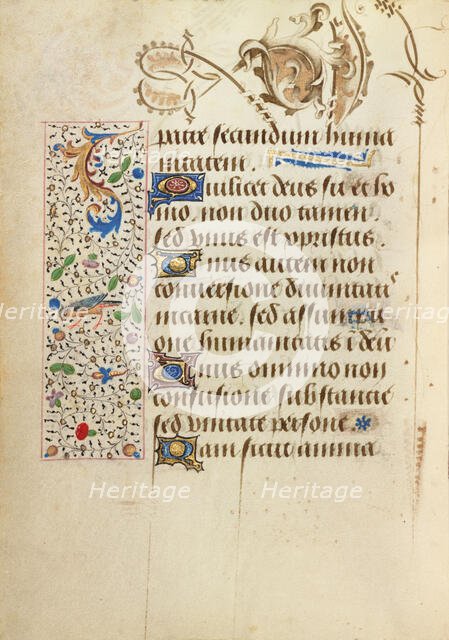 patre secundum huma
nitatem.
Qui licet deus sit et ho
mo. non duo tamen
sed unus est xpristus.
Unus autem non
conuersione diuinitatis
in carne. sed assumpti
one humanitatis i deū
Unus omnino non
confusione substancie
sed unitate persone
Nam sicut anima
Heritage
Heritage
Heritage
Heritage
Heritage
Heritage
Heritage